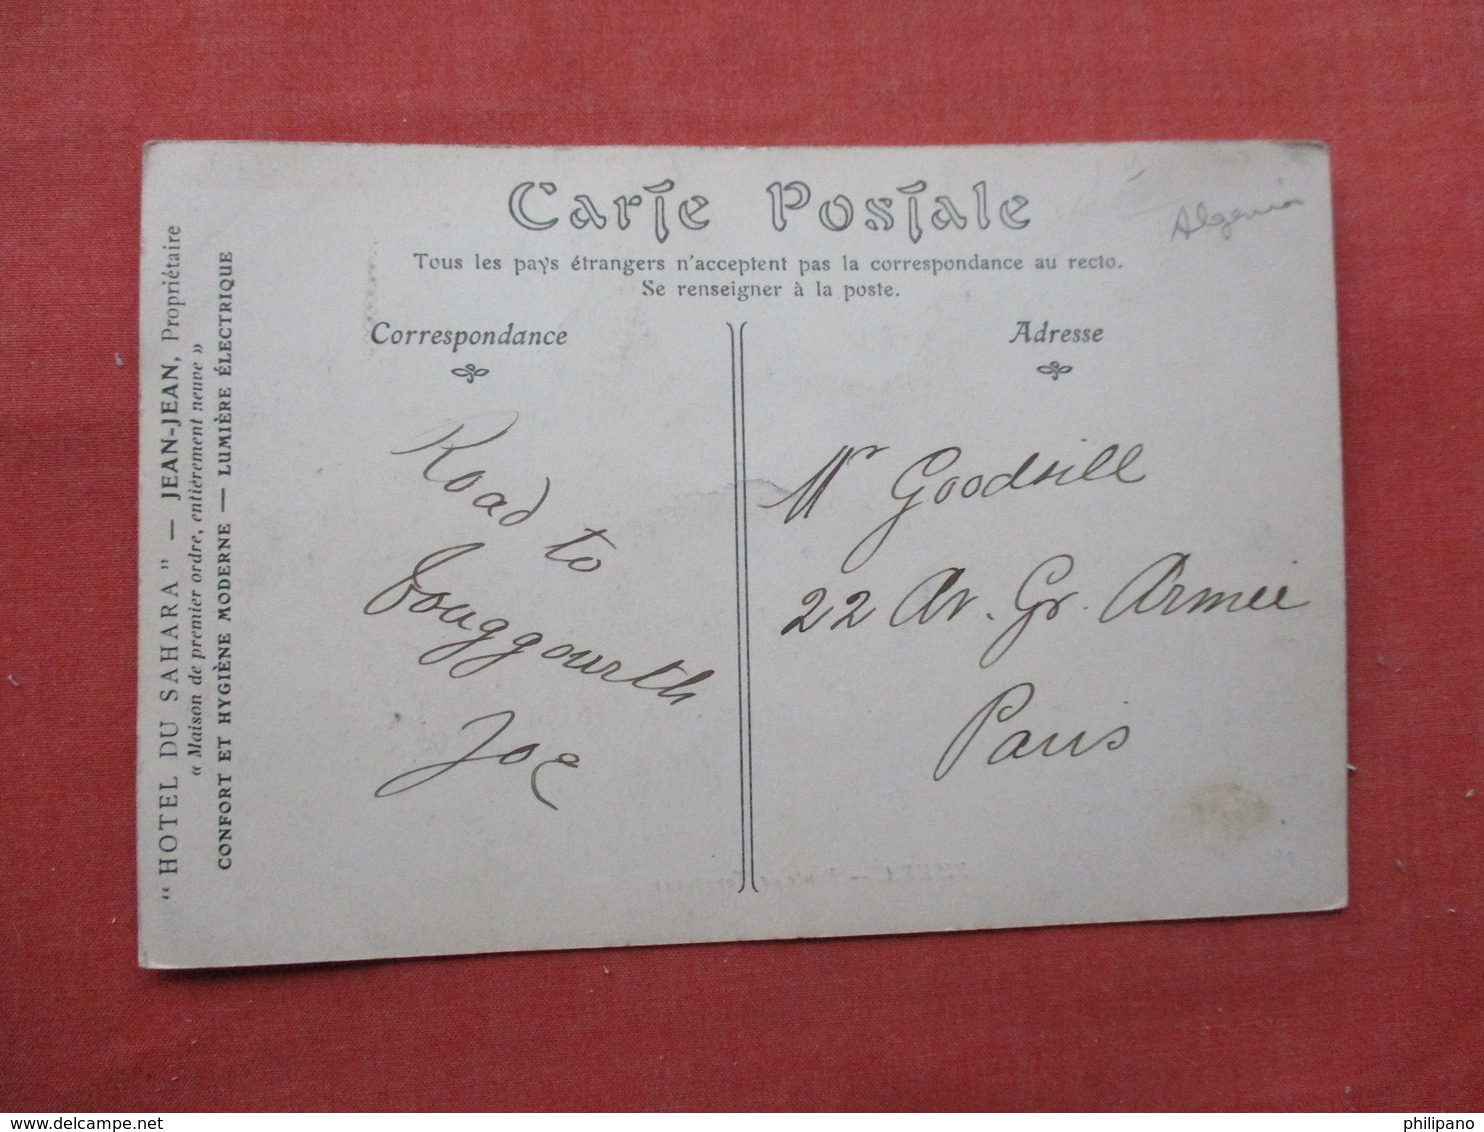 Carte Postale
Tous les pays étrangers n'acceptent pas la correspondance au recto.
Se renseigner à la poste.
Algeria
Correspondance
Adresse
"HOTEL DU SAHARA" — JEAN-JEAN, Propriétaire
« Maison de premier ordre, entièrement neuve »
CONFORT ET HYGIÈNE MODERNE — LUMIÈRE ÉLECTRIQUE
Road
to
Touggourth
Joe
Mr Goodsill
22 Av. Gr. Armée
Paris
delcampe.net
philipano